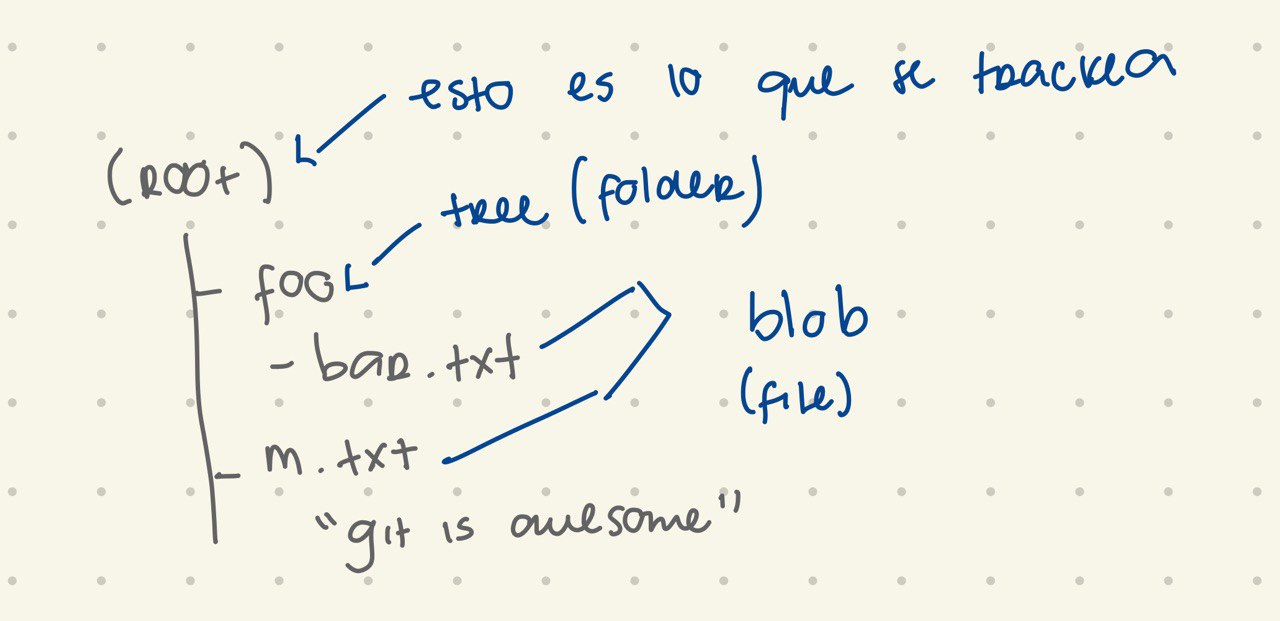 esto es lo que se trackea
(root)
tree (folder)
foo
blob
- bar.txt
(file)
m.txt
"git is awesome"